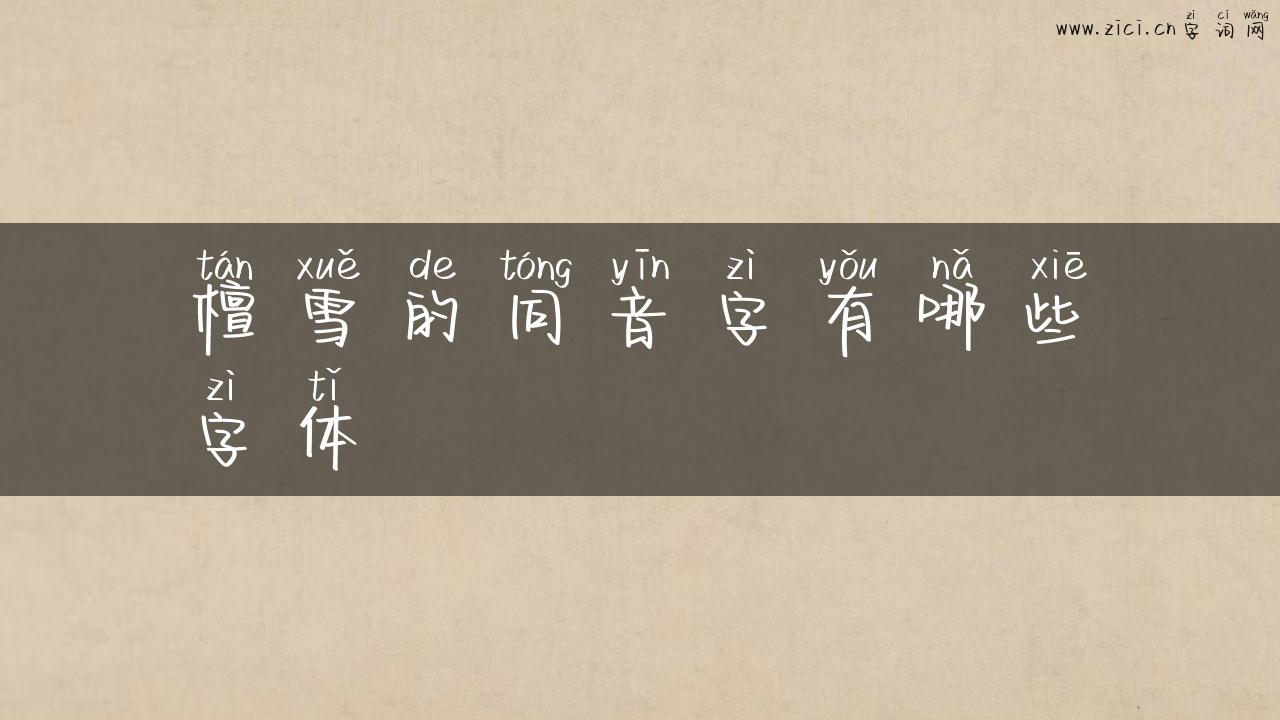 zì cí wǎng
www.zici.cn字词网
tán xuě de tóng yīn zì yǒu nǎ xiē
檀雪的同音字有哪些
zì tǐ
字体